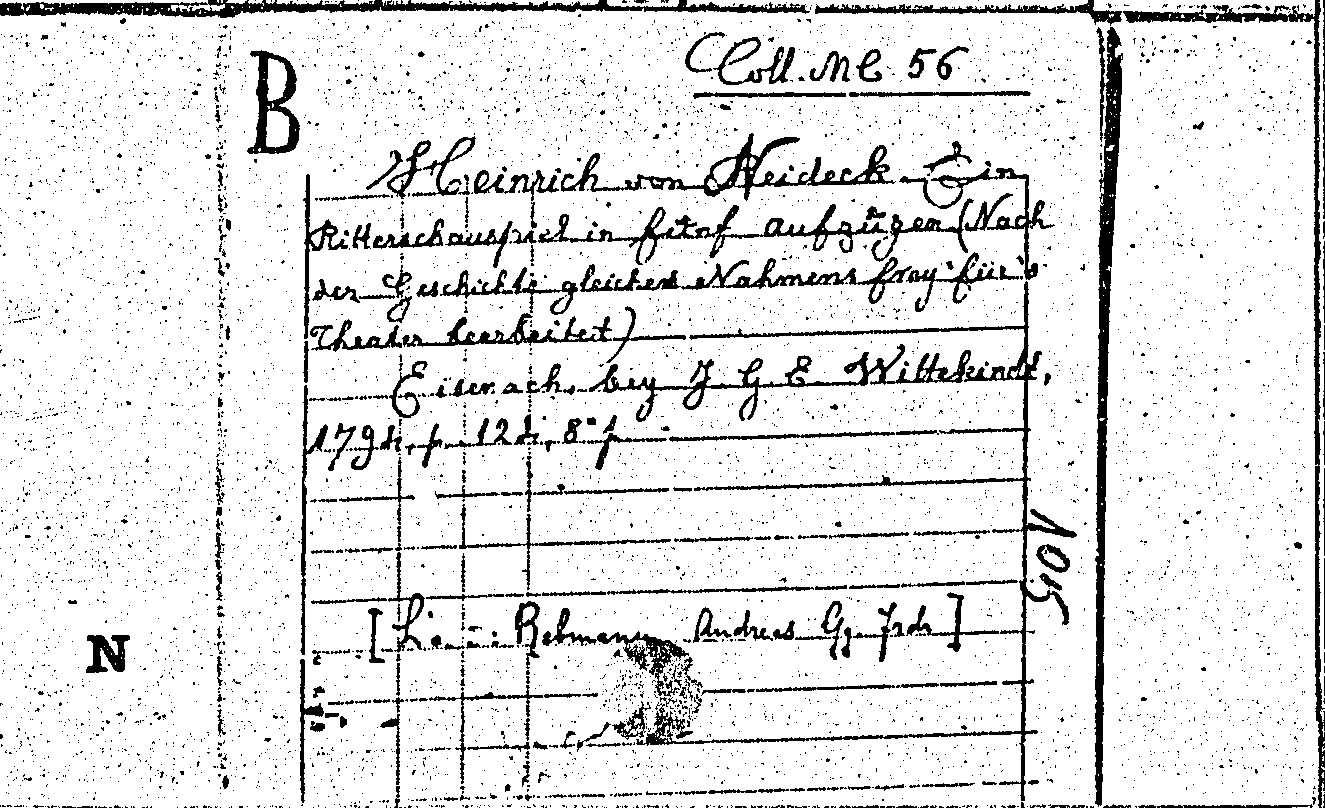 B
Coll. MC 56
Heinrich von Neideck. Ein
Ritterschauspiel in fünf Aufzügen (Nach
der Geschichte gleichen Nahmens frey für's
Theater bearbeitet)
Eisenach, bey J. G. E. Wittekindt,
p. 124, 8°
N
Rebmann Andreas Gg. Frdr ]